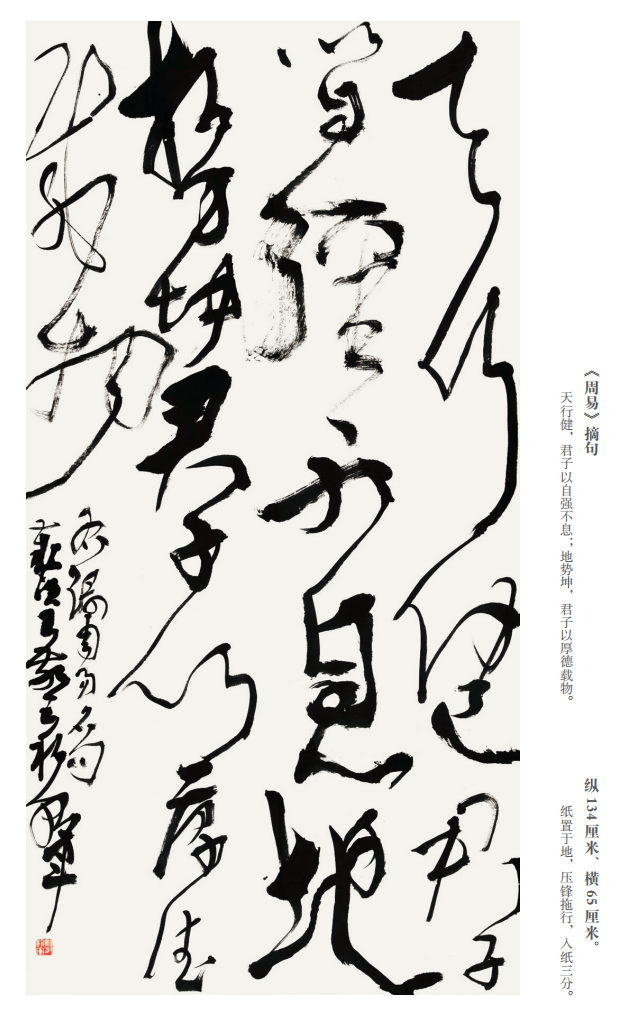 《周易》摘句
天行健，君子以自强不息；地势坤，君子以厚德载物。
纵 134 厘米、横 65 厘米。
纸置于地，压锋拖行，入纸三分。
天行健君子
以自强不息地
势坤君子以厚德
载物
周易名句